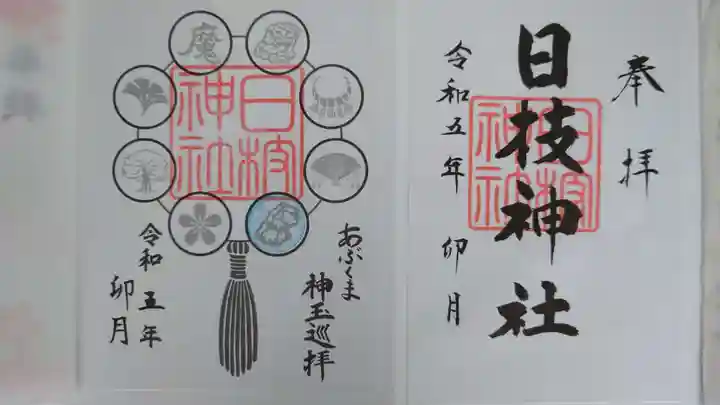 奉拝
日枝神社
令和五年 卯月
日枝神社
あぶくま
神玉巡拝
魔
日枝神社
令和五年
卯月